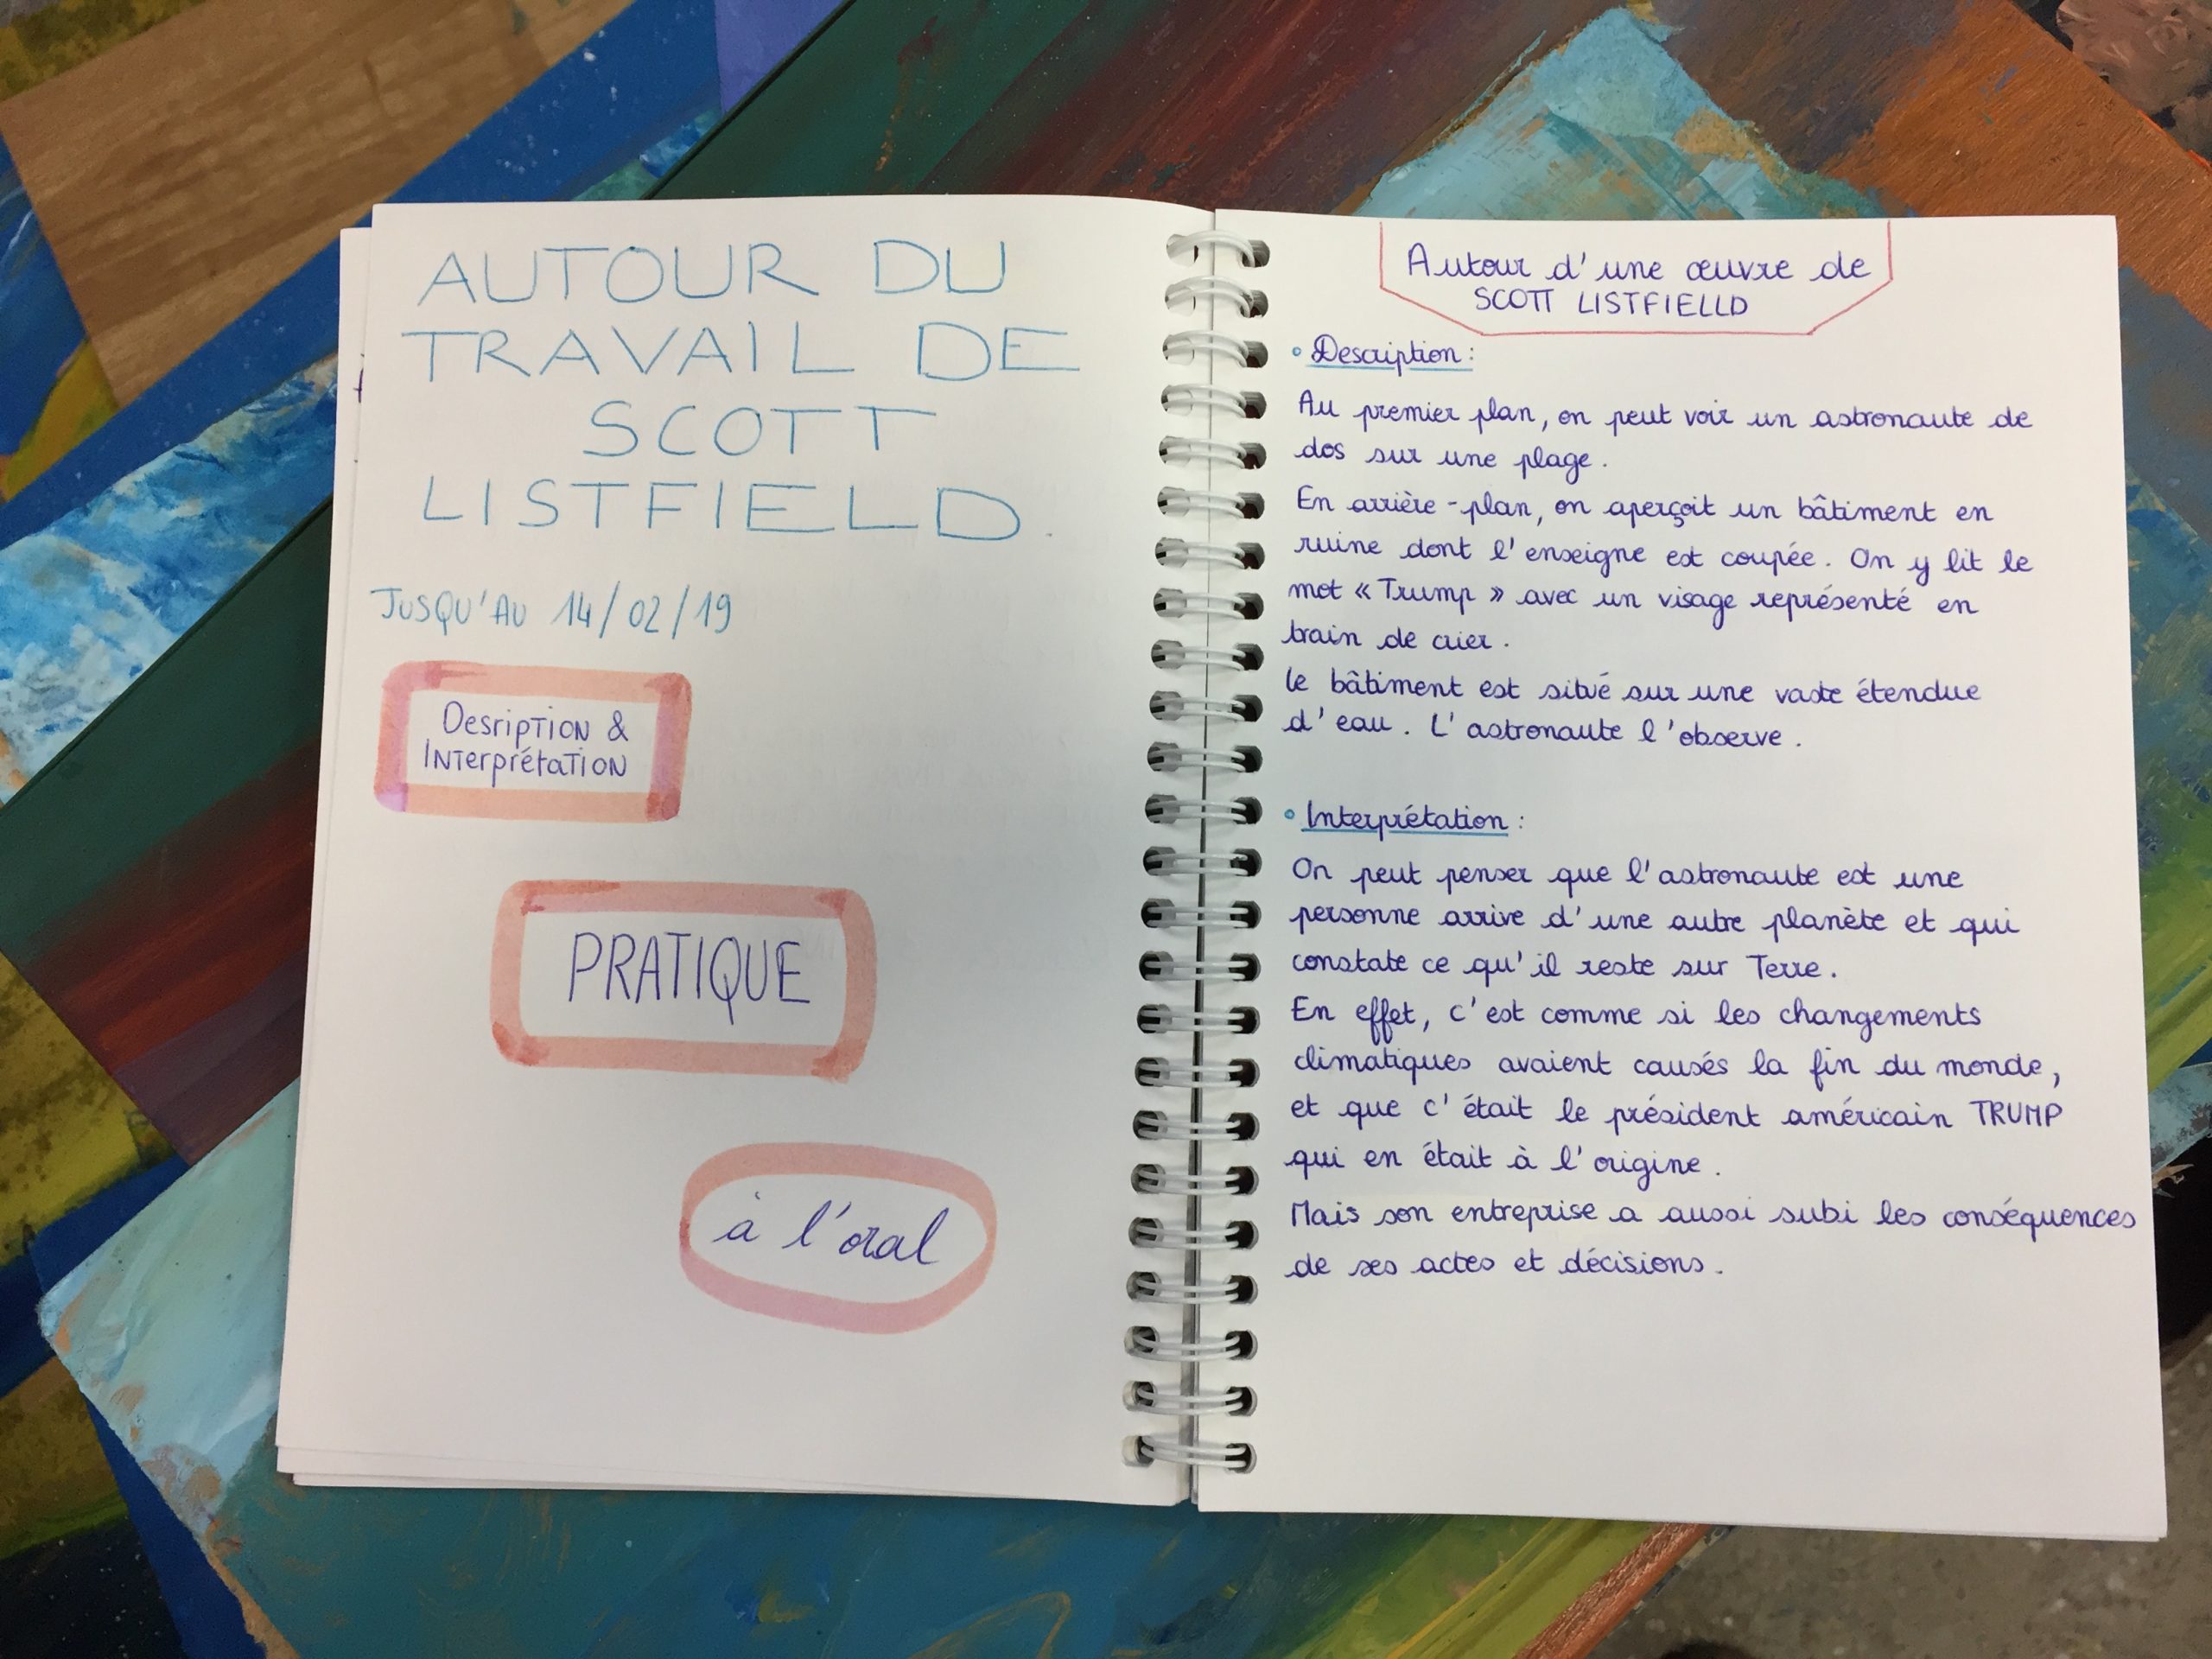 AUTOUR DU
TRAVAIL DE
SCOTT
LISTFIELD
JUSQU'AU 14/02/19
Desription &
Interprétation
PRATIQUE
à l'oral
Autour d'une œuvre de
SCOTT LISTFIELLD
• Description :
Au premier plan, on peut voir un astronaute de
dos sur une plage.
En arrière-plan, on aperçoit un bâtiment en
ruine dont l'enseigne est coupée. On y lit le
mot « Trump » avec un visage représenté en
train de crier.
Le bâtiment est situé sur une vaste étendue
d'eau. L'astronaute l'observe.
• Interprétation :
On peut penser que l'astronaute est une
personne arrive d'une autre planète et qui
constate ce qu'il reste sur Terre.
En effet, c'est comme si les changements
climatiques avaient causés la fin du monde,
et que c'était le président américain TRUMP
qui en était à l'origine.
Mais son entreprise a aussi subi les conséquences
de ses actes et décisions.